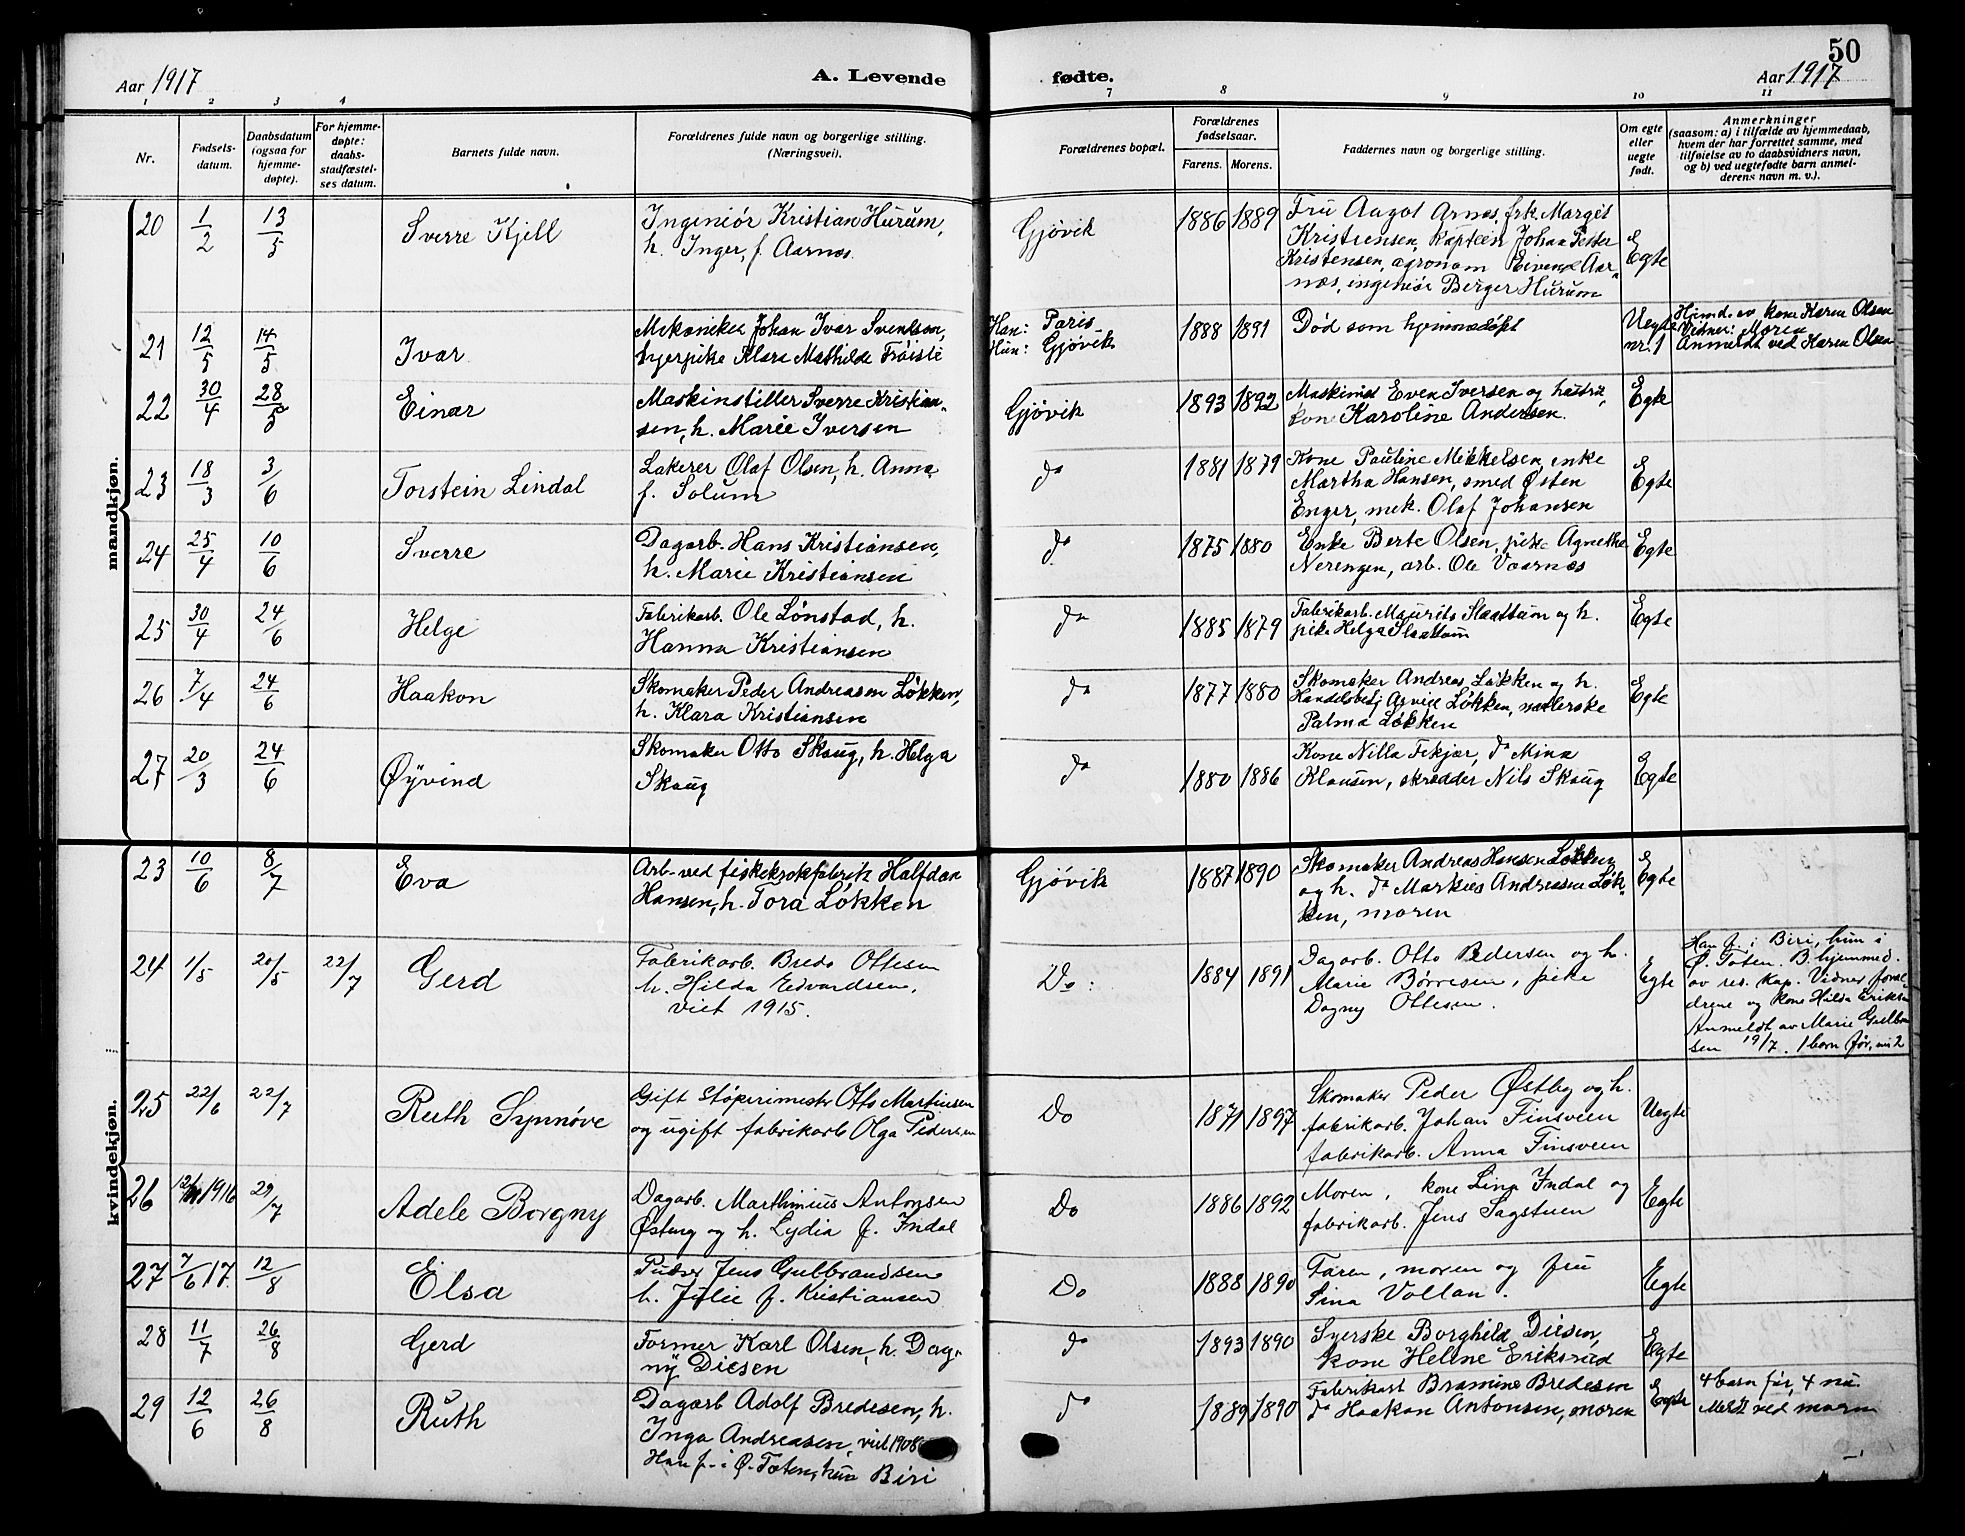 50
Aar 1917
A. Levende
fødte.
Aar 1917
1 2 3 4 7 8 9 10 11
Nr.
Fødsels-
datum.
Daabsdatum
(ogsaa for
hjemme-
døpte).
For hjemme-
døpte:
daabs-
stadfæstel-
ses datum.
Barnets fulde navn.
Forældrenes fulde navn og borgerlige stilling.
(Næringsvei).
Forældrenes bopæl.
Forældrenes
fødselsaar.
Farens. Morens.
Faddernes navn og borgerlige stilling.
Om egte
eller
uegte
født.
Anmerkninger
(saasom: a) i tilfælde av hjemmedaab,
hvem der har forrettet samme, med
tilføielse av to daabsvidners navn,
og b) ved uegtefødte barn anmel-
derens navn m. v.).
mandkjøn.
20 1/2 13/5 Sverre Kjell
Ingeniör Kristian Hurum,
h. Inger, f. Aarnæs.
Gjövik 1886 1889
Fru Aagot Arnæs, frk. Margit
Kristensen, kaptein Johan Petter
Kristensen, agronom Eivind Aar-
næs, ingeniör Berger Hurum
Egte
21 12/5 14/5 Ivar
Mekaniker Johan Ivar Svendsen,
Klara Mathilde
Han: Paris
Hun: Gjøvik
1888 1891 Död som hjemmedöpt
Uegte
nr. 1
Hjemd. av kone Karen Olsen
Vidner: Moren
Anmeldt ved Karen Olsen
22 30/4 28/5 Einar
Maskinstiller Sverre Kristian-
sen, h. Marie Iversen
Gjövik 1893 1892
Maskinist Even Iversen og hustru,
kone Karoline Andersen.
Egte
23 18/3 3/6 Torstein Lindal
Lakerer Olaf Olsen, h. Anna
f. Solum
do 1881 1879
Kone Pauline Mikkelsen, enke
Martha Hansen, smed Østen
Enger, mek. Olaf Johansen
Egte
24 25/4 10/6 Sverre
Dagarb. Hans Kristiansen,
h. Marie Kristiansen
do 1875 1880
Enke Berte Olsen, pike Agnethe
Nerengen, arb. Ole Vaarnæs
Egte
25 30/4 24/6 Helge
Fabrikarb. Ole Lönstad, h.
Hanna Kristiansen
do 1885 1879
Fabrikarb. Maurits Slaattum og h.
pike Helga Slaattum
Egte
26 7/4 24/6 Haakon
Skomaker Peder Andreasen Løkken,
h. Klara Kristiansen
do 1877 1880
Skomaker Andreas Løkken og h.
Handelsbetj. Arvid Løkken,
Palma Løkken
Egte
27 20/3 24/6 Øyvind
Skomaker Otto Skaug, h. Helga
Skaug
do 1880 1886
Kone Nilla Fekjær, do Mina
Klausen, skrædder Nils Skaug
Egte
kvindekjøn.
23 10/6 8/7 Eva
Arb. ved fiskekrokfabrik Halfdan
Hansen, h. Tora Løkken
Gjövik 1887 1890
Skomaker Andreas Hansen Løkken
og h. do Markus Andreasen Løk-
ken, moren
Egte
24 1/5 20/5 22/7 Gerd
Fabrikarb. Bredo Ottesen
h. Hilda Edvardsen,
viet 1915.
Do: 1884 1891
Dagarb. Otto Pedersen og h.
Marie Børresen, pike
Dagny Ottesen.
Egte
Han f. i Biri, hun i
Ø. Toten. B. hjemmed.
av res. kap. Vidner foræl-
drene og kone Hilda Eriksen
Anmeldt av Marie Gulbran
sen 19/7. 1 barn før, nu 2
25 22/6 22/7 Ruth Synnøve
Gift Støperimester Otto Martinsen
og ugift fabrikarb Olga Pedersen
Do 1871 1897
Skomaker Peder Østby og h.
fabrikarb. Johan Finsveen
fabrikarb. Anna Finsveen
Uegte
26 1916 29/7 Adele Borgny
Dagarb. Marthinius Antonsen
Østeng og h. Lydia f. Indal
Do 1886 1892
Moren, kone Lina Indal og
fabrikarb. Jens Sagstuen
Egte
27 7/6 17. 12/8 Elsa
Pudser Jens Gulbrandsen
h. Julie f. Kristiansen
Do 1888 1890
Faren, moren og fru
Sina Vollan.
Egte
28 11/7 26/8 Gerd
Former Karl Olsen, h. Dag-
ny Diesen
do 1893 1890
Syerske Borghild Diesen,
kone Heline Eriksrud
Egte
29 12/6 26/8 Ruth
Dagarb Adolf Bredesen, h.
Inga Andreasen, viet 1908
Han f. i Ø. Toten, hun Biri
do 1889 1890
Fabrikarb Bramine Bredesen
do Haakon Antonsen, moren
Egte
4 barn før, 4 nu.
Meldt ved moren